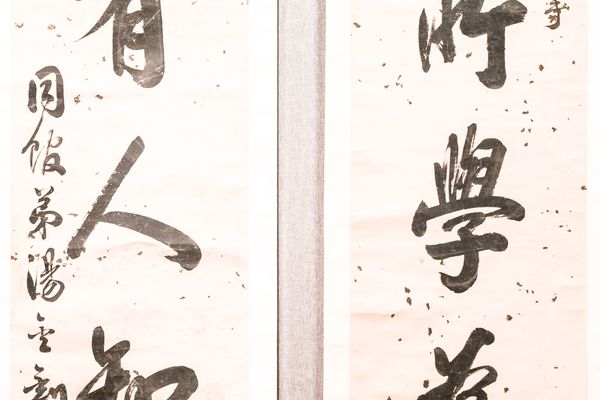 所學
有人知
同館弟湯金釗